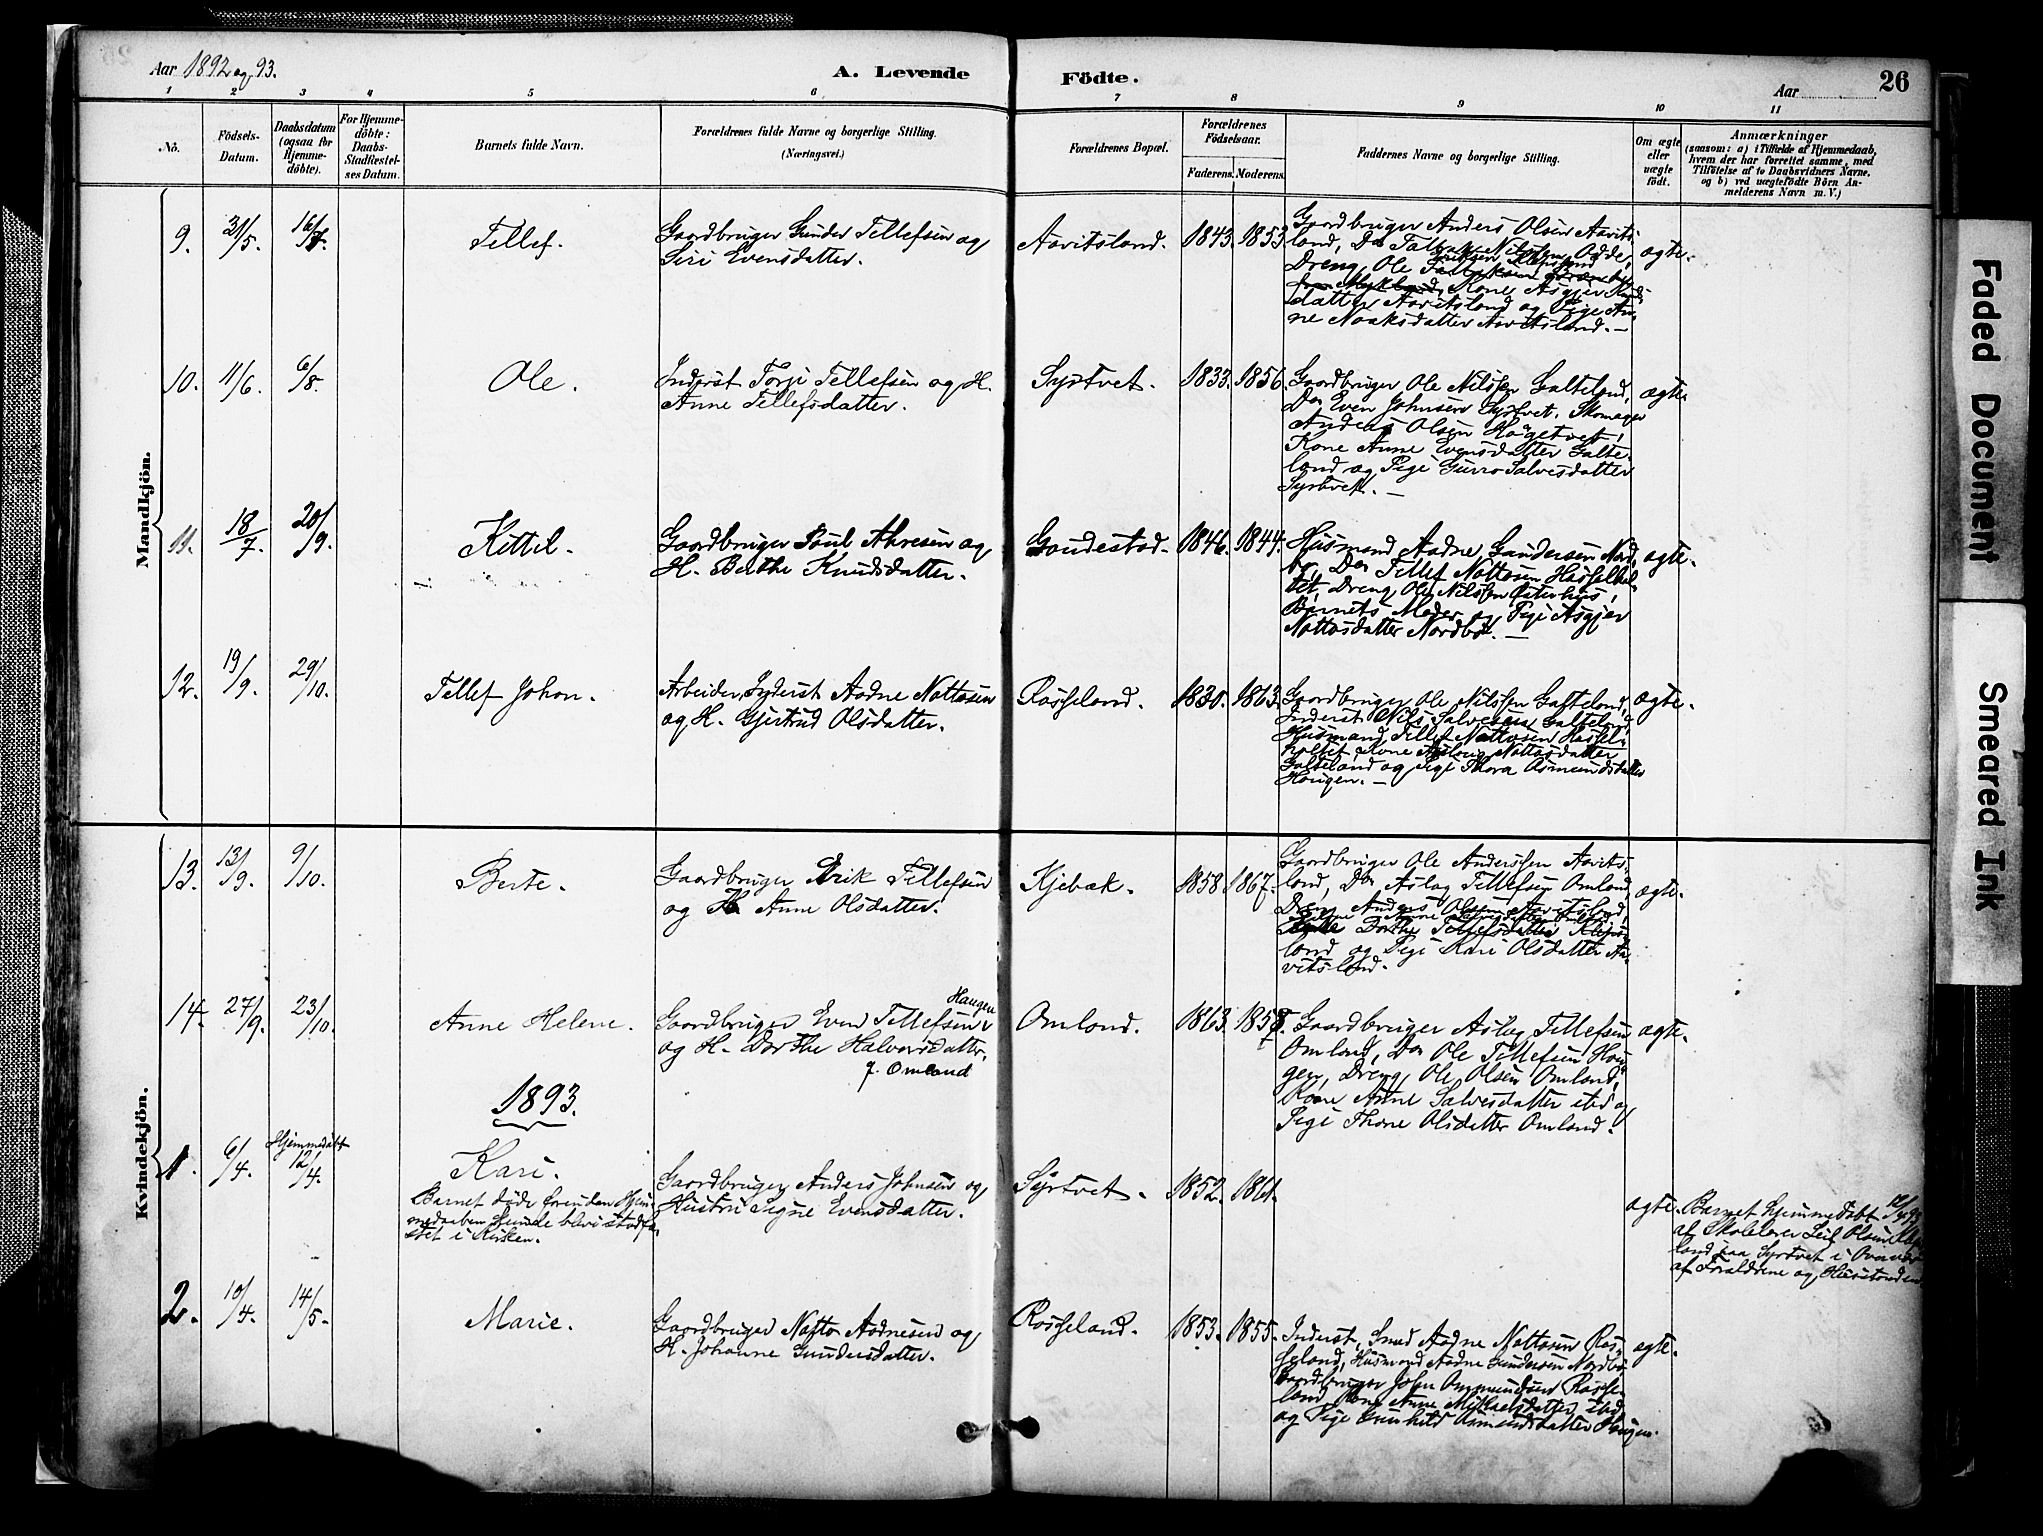 Aar 1892 og 93.
A. Levende
Födte.
Aar
26
1 2 3 4 5 6 7 8 9 10 11
No.
Födsels-
Datum.
Daabsdatum
(ogsaa for
Hjemme-
döbte).
For Hjemme-
döbte:
Daabs-
Stadfestel-
ses Datum.
Barnets fulde Navn.
Forældrenes fulde Navne og borgerlige Stilling.
(Næringsvei.)
Forældrenes Bopæl.
Forældrenes
Födselsaar.
Faderens.
Moderens.
Faddernes Navne og borgerlige Stilling.
Om ægte
eller
uægte
födt.
Anmærkninger
(saasom: a) i Tilfælde af Hjemmedaab,
hvem der har forrettet samme, med
Tilföielse af to Daabsvidners Navne.
og b) ved uægtefödte Börn An-
melderens Navn m. V.)
Mandkjön.
9.
31/5.
Tellef.
Gaardbruger Gunder Tellefsen og
Siri Evensdatter.
Aavitsland.
1843.
1853.
Gaardbruger Anders Olsen Aavits-
land, Do Nilssen Odde,
Dreng Ole
Kone Asgjer
datter Aavitsland og Pige An-
ne Noaksdatter Aavitsland. —
ægte.
10.
11/6.
6/8.
Ole.
Inderst Torje Tellefsen og H.
Anne Tellefsdatter.
Syrtvet.
1833.
1856.
Gaardbruger Ole Nilssen Galteland,
Do Even Johnsen Syrtvet, Skomager
Anders Olsen Högetvet,
Kone Anne Evensdatter Galte-
land og Pige Gurro Salvesdatter
Syrtvet. —
ægte.
11.
18/7.
20/9.
Kittel.
Gaardbruger Poul Akresen og
H. Berthe Knudsdatter.
Gaudestad.
1846.
1844.
Husmand Aadne Gundersen Nord-
bø, Do Tellef Nottosen Hasselhol-
tet, Dreng Ole Nilssen Østerhus,
Barnets Moder og Pige Asgjer
Nottosdatter Nordbø. —
ægte.
12.
19/9.
29/10.
Tellef Johan.
Arbeider, Inderst Aadne Nottosen
og H. Gjertrud Olsdatter.
Rosseland.
1830.
1863.
Gaardbruger Ole Nilssen Galteland,
Inderst Nils Salvesen Galteland,
Husmand Tellef Nottosen Hassel-
holtet, Kone Aslaug Nottosdatter
Galteland og Pige Thora Osmundsdatter
Haugen. —
ægte.
Kvindekjön.
13.
13/9.
9/10.
Berte.
Gaardbruger Erik Tellefsen
og H. Anne Olsdatter.
Kjebæk.
1858
1867.
Gaardbruger Ole Anderssen Aavits-
land, Do Aslag Tellefsen Omland,
Dreng Anders Olsen Aavitsland,
Dorthe Tellefsdatter Kleps-
land og Pige Kari Olsdatter Aa-
vitsland.
ægte.
14.
27/9.
23/10.
Anne Helene.
Haugen
Gaardbruger Even Tellefsen
og H. Dorthe Halvorsdatter,
f. Omland
Omland.
1863.
1858.
Gaardbruger Aslag Tellefsen
Omland, Do Ole Tellefsen Hau-
gen, Dreng Ole Olsen Omland,
Kone Anne Salvesdatter ibid og
Pige Thone Olsdatter Omland.
ægte.
1893.
1.
6/4.
Hjemmedöbt
12/4.
Kari.
Barnet døde førend en Hjem-
medaaben kunde blive stadfæ-
stet i Kirken.
Gaardbruger Anders Johnsen og
Hustru Signe Evensdatter.
Syrtvet.
1852.
1861.
ægte.
Barnet hjemmedöbt 12/4 93
af Skolelærer Leif Olsen
land paa Syrtvet i Overvær
af Forældrene og Husstanden
2.
10/4.
14/5.
Marie.
Gaardbruger Notto Aadnesen og
H. Johanne Gundersdatter.
Rosseland.
1853.
1855.
Inderst, Smed Aadne Nottosen Ros-
seland, Husmand Aadne Gundersen Nordbø,
Gaardbruger John Ommundsen Rosse-
land, Kone Anne Mikkelsdatter ibid
og Pige Gunhild Osmundsdatter Haugen.
ægte.
Faded Document
Smeared Ink